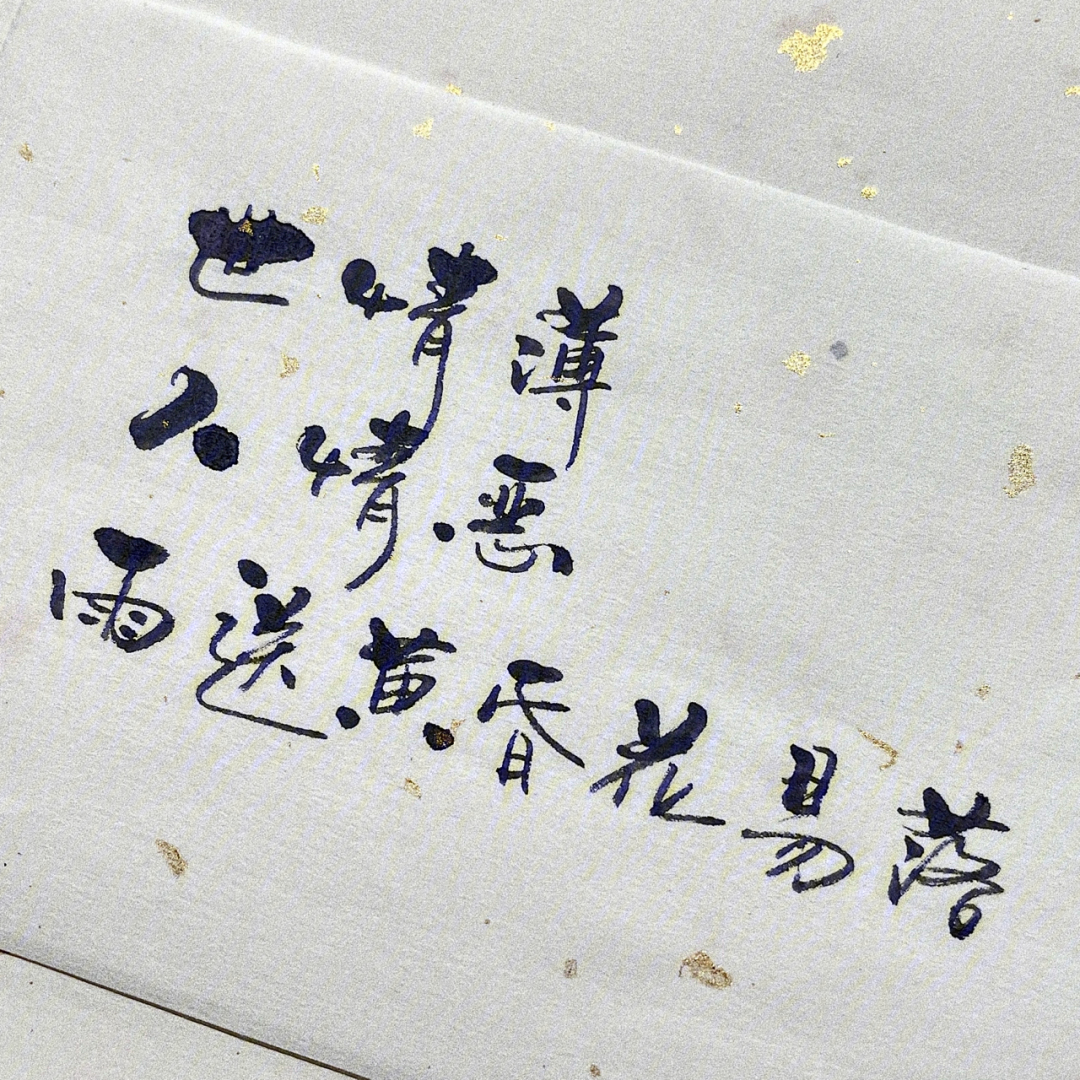 世情薄
人情恶
雨送黄昏花易落